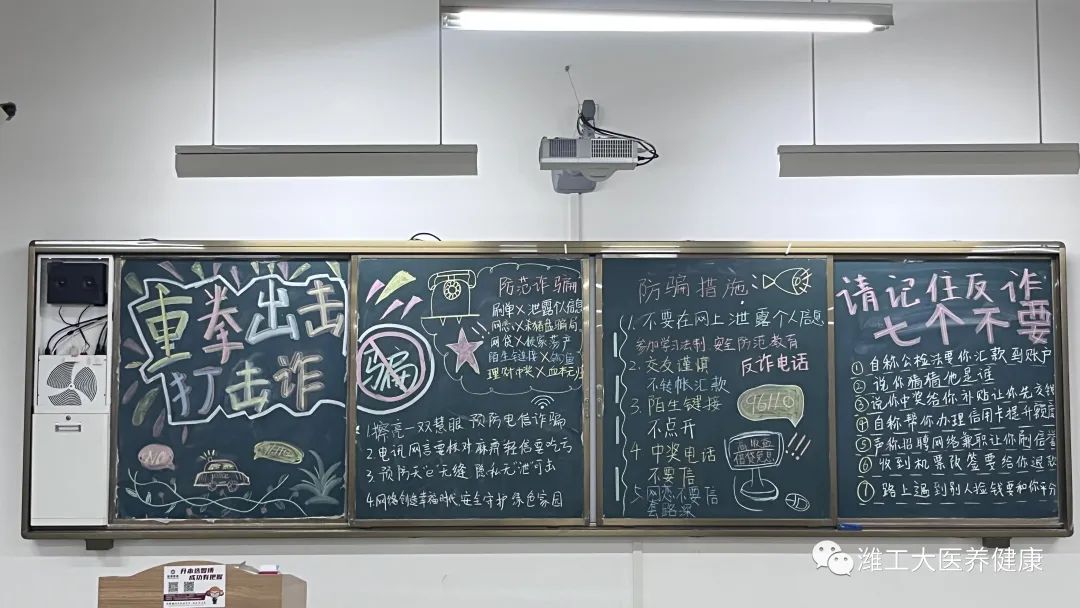 重拳出击
打击诈
NO
骗
防范诈骗
刷单乂泄露个人信息
网恋乂杀猪盘骗局
陌生链接乂
理财中奖乂血本无
1.擦亮一双慧眼 预防电信诈骗
2.电讯网言要核对 麻痹轻信要吃亏
3.预防天“无缝 隐私无”泄可击
4.网络创造幸福时代 安全守护绿色家园
防骗措施:
1.不要在网上泄露个人信息
参加学习法制 安全防范教育
2.交友谨慎
不转帐汇款
反诈电话
96110
3.陌生链接
不点开
4 中奖电话
不要信
5.网恋不要信
套路深
请记住反诈
七个不要
① 自称公检法要你汇款到账户
② 说你猜猜他是谁
③ 说你中奖给你补贴让你先交钱
④ 自称帮你办理信用卡提升额度
⑤ 声称招聘网络兼职让你刷信誉
⑥ 收到机票改签要给你退
⑦ 路上遇到别人捡钱要和你平分
升本选置博
成功有把握
潍工大医养健康